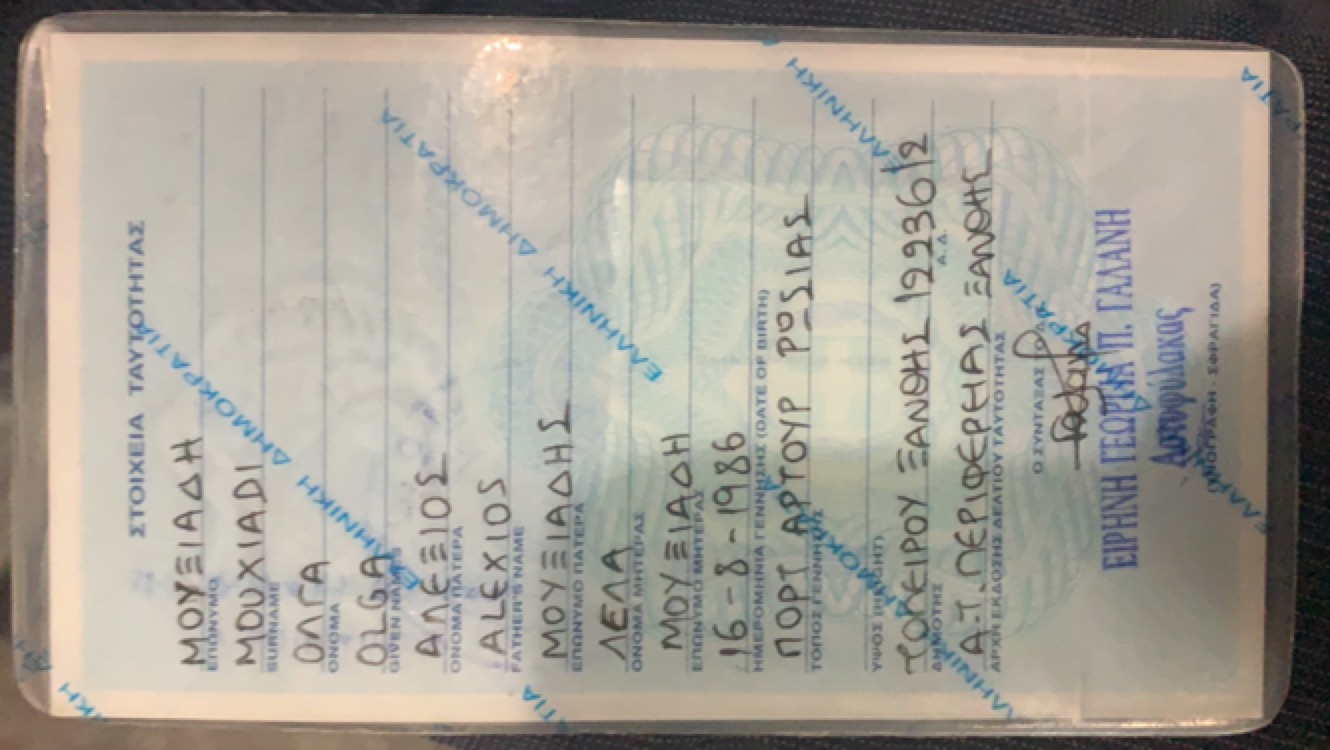 ΣΤΟΙΧΕΙΑ ΤΑΥΤΟΤΗΤΑΣ
ΜΟΥΞΙΑΔΗ
ΕΠΩΝΥΜΟ
MOUXIADI
SURNAME
ΟΛΓΑ
ΟΝΟΜΑ
OLGA
GIVEN NAMES
ΑΛΕΞΙΟΣ
ΟΝΟΜΑ ΠΑΤΕΡΑ
ALEXIOS
FATHER'S NAME
ΜΟΥΞΙΑΔΗΣ
ΕΠΩΝΥΜΟ ΠΑΤΕΡΑ
ΛΕΛΑ
ΟΝΟΜΑ ΜΗΤΕΡΑΣ
ΜΟΥΞΙΑΔΗ
ΕΠΩΝΥΜΟ ΜΗΤΕΡΑΣ
16-8-1986
ΗΜΕΡΟΜΗΝΙΑ ΓΕΝΝΗΣΗΣ (DATE OF BIRTH)
ΠΟΡΤ ΑΡΤΟΥΡ ΡΩΣΙΑΣ
ΤΟΠΟΣ ΓΕΝΝΗΣΗΣ
ΥΨΟΣ (HEIGHT)
ΤΟΠΕΙΡΟΥ ΞΑΝΘΗΣ 12236/2
ΔΗΜΟΤΗΣ Α.Δ.
Α.Τ. ΠΕΡΙΦΕΡΕΙΑΣ ΞΑΝΘΗΣ
ΑΡΧΗ ΕΚΔΟΣΗΣ ΔΕΛΤΙΟΥ ΤΑΥΤΟΤΗΤΑΣ
Ο ΣΥΝΤΑΞΑΣ
ΕΙΡΗΝΗ ΓΕΩΡΓΙΑ Π. ΓΑΛΑΝΗ
Αστυφύλακας
(ΥΠΟΓΡΑΦΗ - ΣΦΡΑΓΙΔΑ)
ΕΛΛΗΝΙΚΗ ΔΗΜΟΚΡΑΤΙΑ